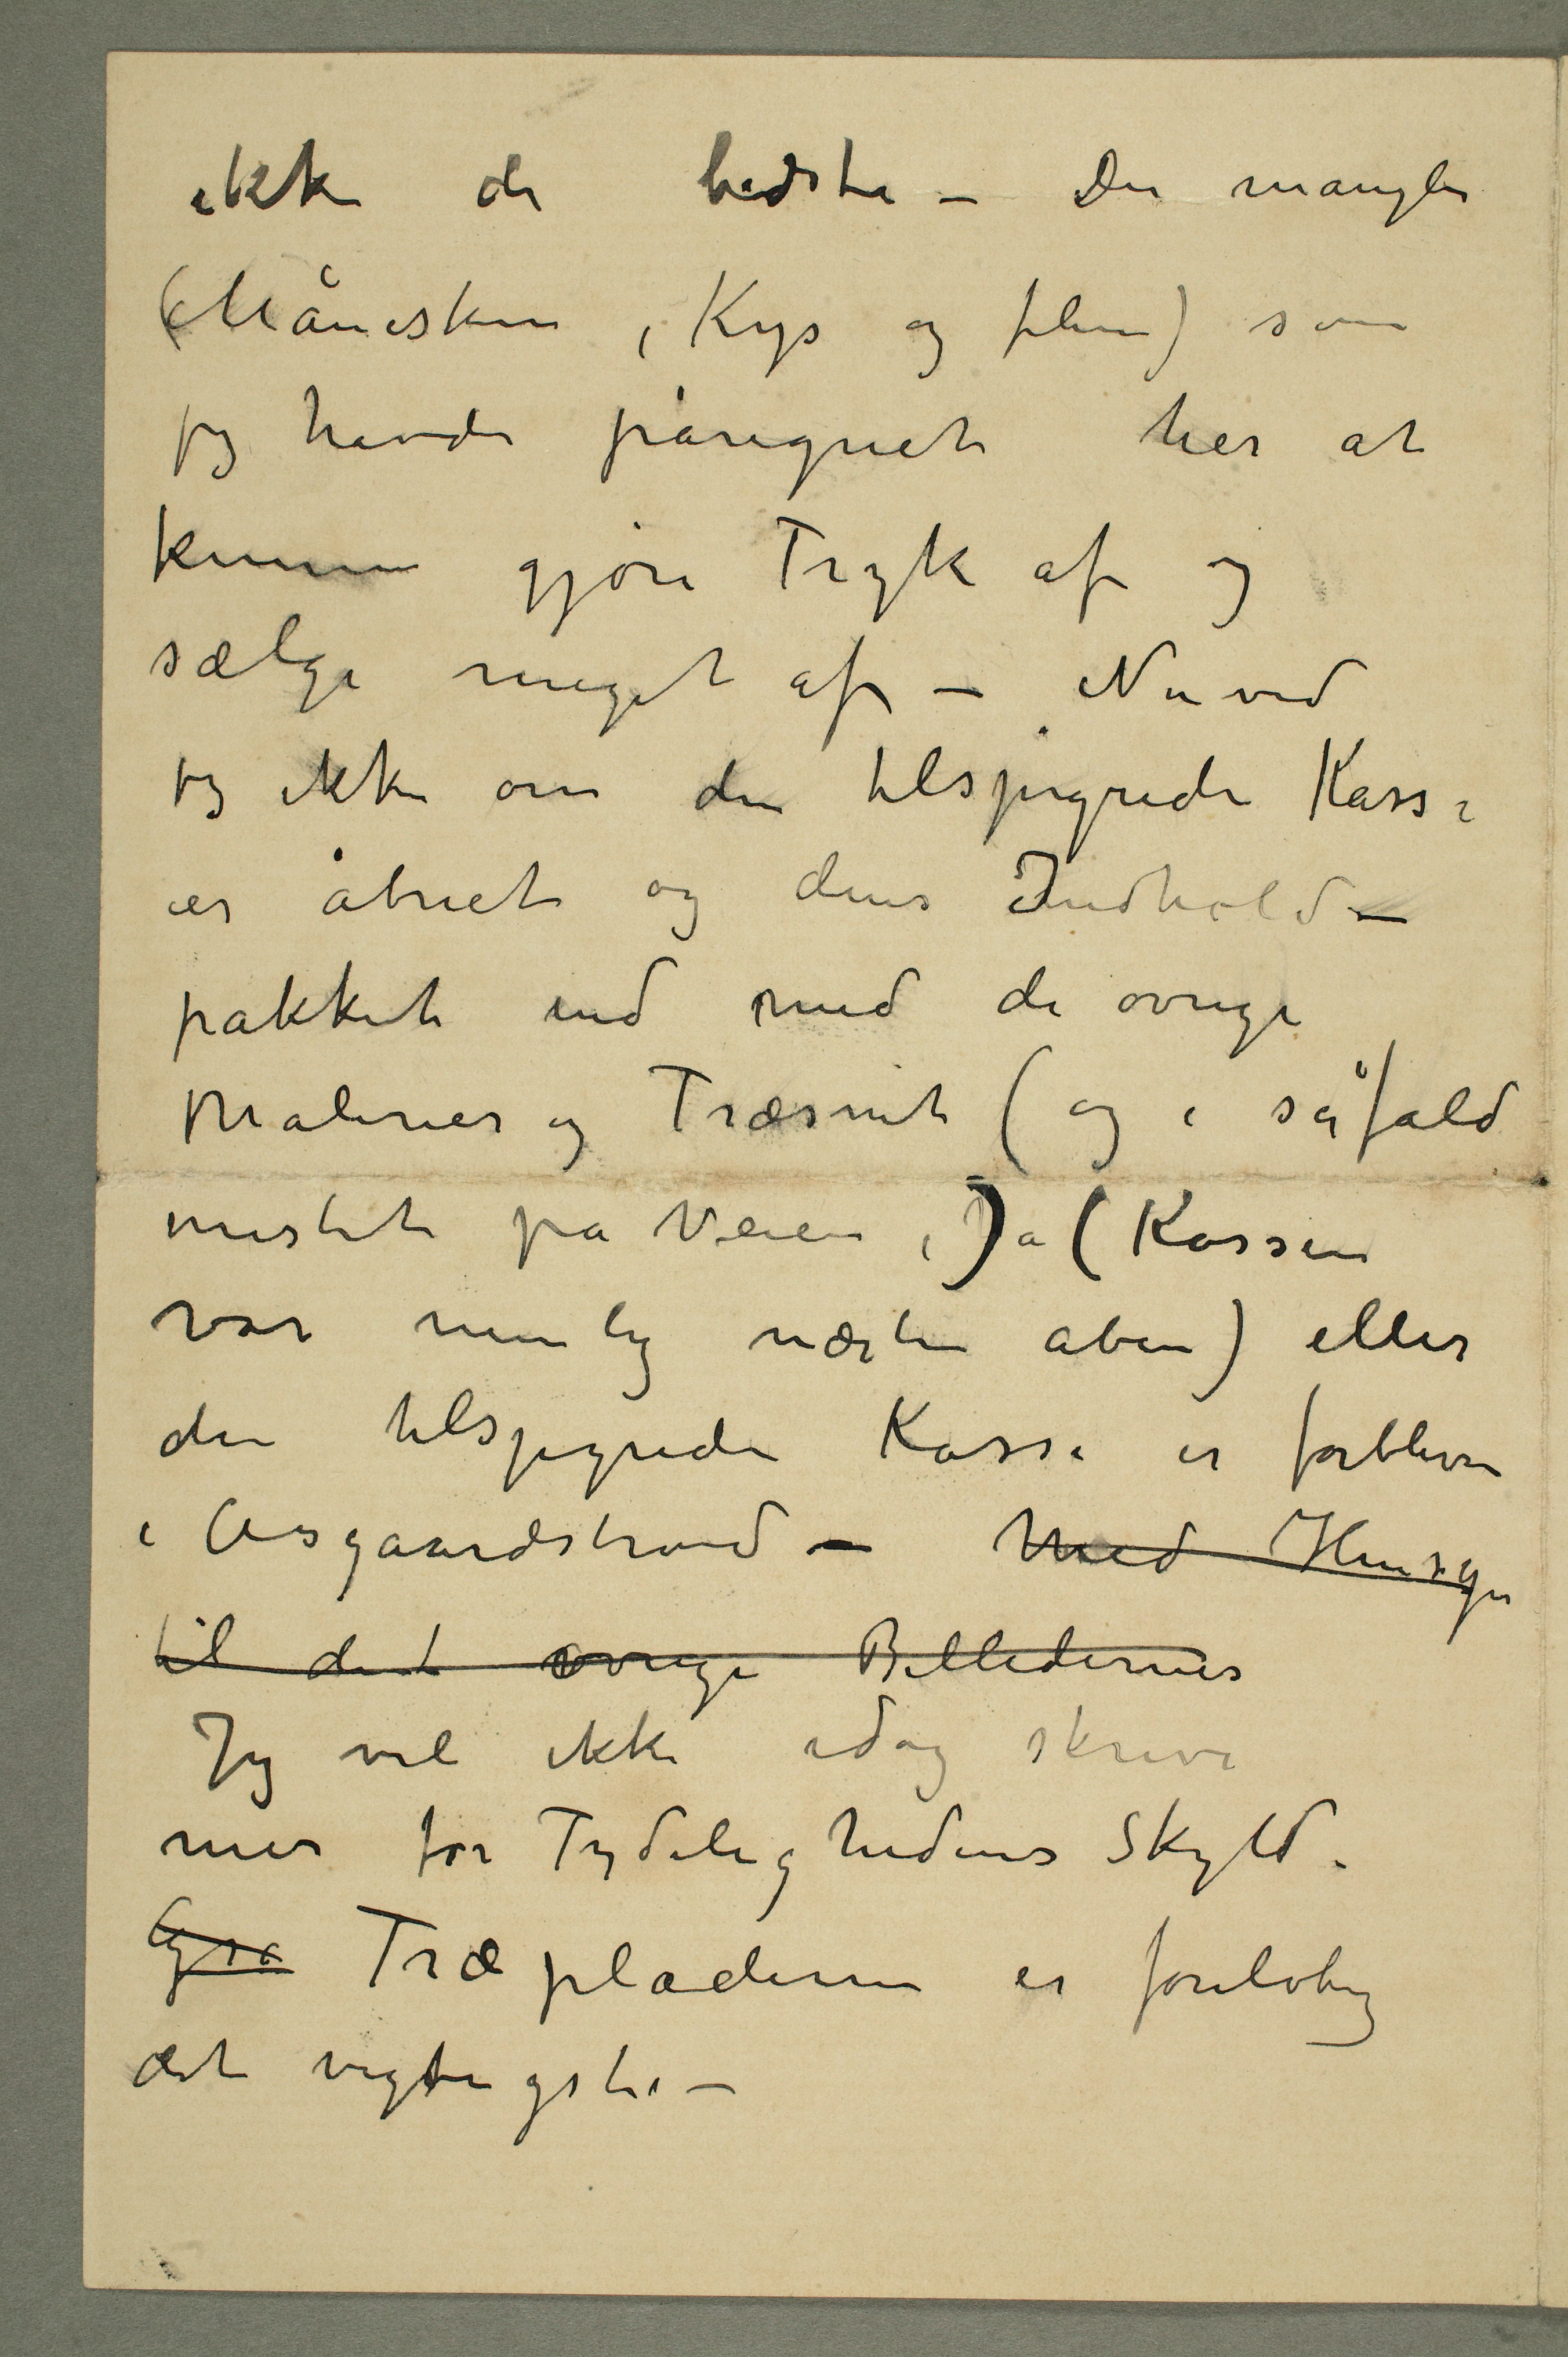 ikke de bedste – Der mangler
(Måneskin, Kys og flere) som
jeg havde påregnet her at
kunne gjøre Tryk af og
sælge meget af – Nu ved
jeg ikke om den tilspigrede Kasse
er åbnet og dens Indhold –
pakket ind med de øvrige
Malerier og Træsnit (og i såfald
mistet på Veien,) a (Kassen
var nemlig næsten åben) eller
den tilspigrede Kasse er forbleven
i Aasgaardstrand – Med Hensyn
til det øvrige Billedernes
Jeg vil ikke idag skrive
mer for Tydelighedens Skyld.
Træpladerne er foreløbig
det vigtigste –